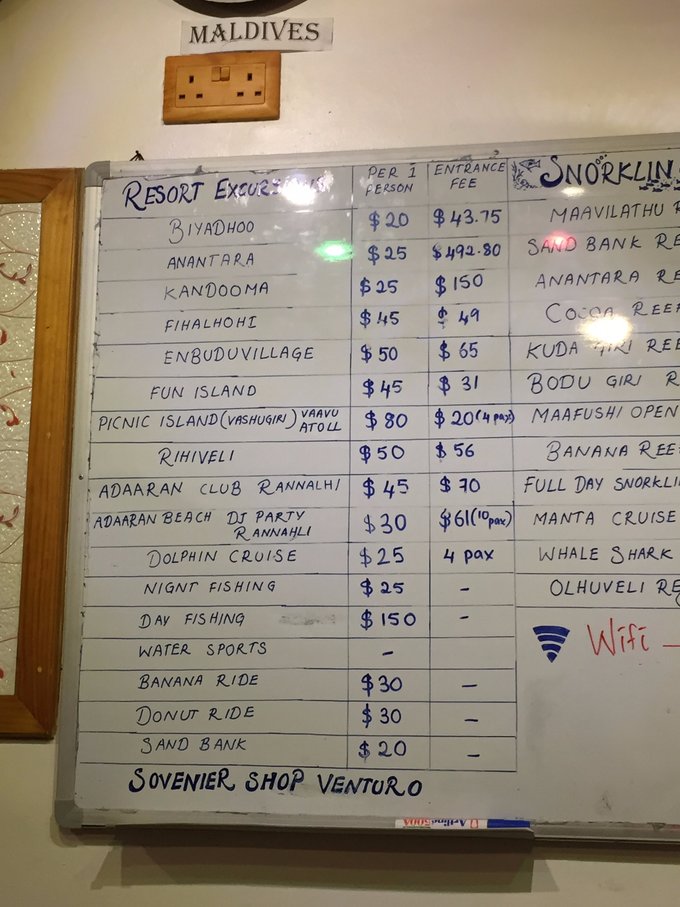 MALDIVES
RESORT EXCURSIONS PER 1 PERSON ENTRANCE FEE
BIYADHOO $20 $43.75
ANANTARA $25 $492.80
KANDOOMA $25 $150
FIHALHOHI $45 $49
ENBUDUVILLAGE $50 $65
FUN ISLAND $45 $31
PICNIC ISLAND (VASHUGIRI) VAAVU ATOLL $80 $20 (4 pax)
RIHIVELI $50 $56
ADAARAN CLUB RANNALHI $45 $70
ADAARAN BEACH DJ PARTY RANNAHLI $30 $61 (10 pax)
DOLPHIN CRUISE $25 4 pax
NIGNT FISHING $25 -
DAY FISHING $150 -
WATER SPORTS -
BANANA RIDE $30 -
DONUT RIDE $30 -
SAND BANK $20 -
SOVENIER SHOP VENTURO
SNORKLIN
MAAVILATHU R
SAND BANK RE
ANANTARA RE
COCOA REEF
KUDA GIRI REE
BODU GIRI R
MAAFUSHI OPEN
BANANA REE
FULL DAY SNORKLI
MANTA CRUISE
WHALE SHARK
OLHUVELI RE
Wifi -
Artline 500A